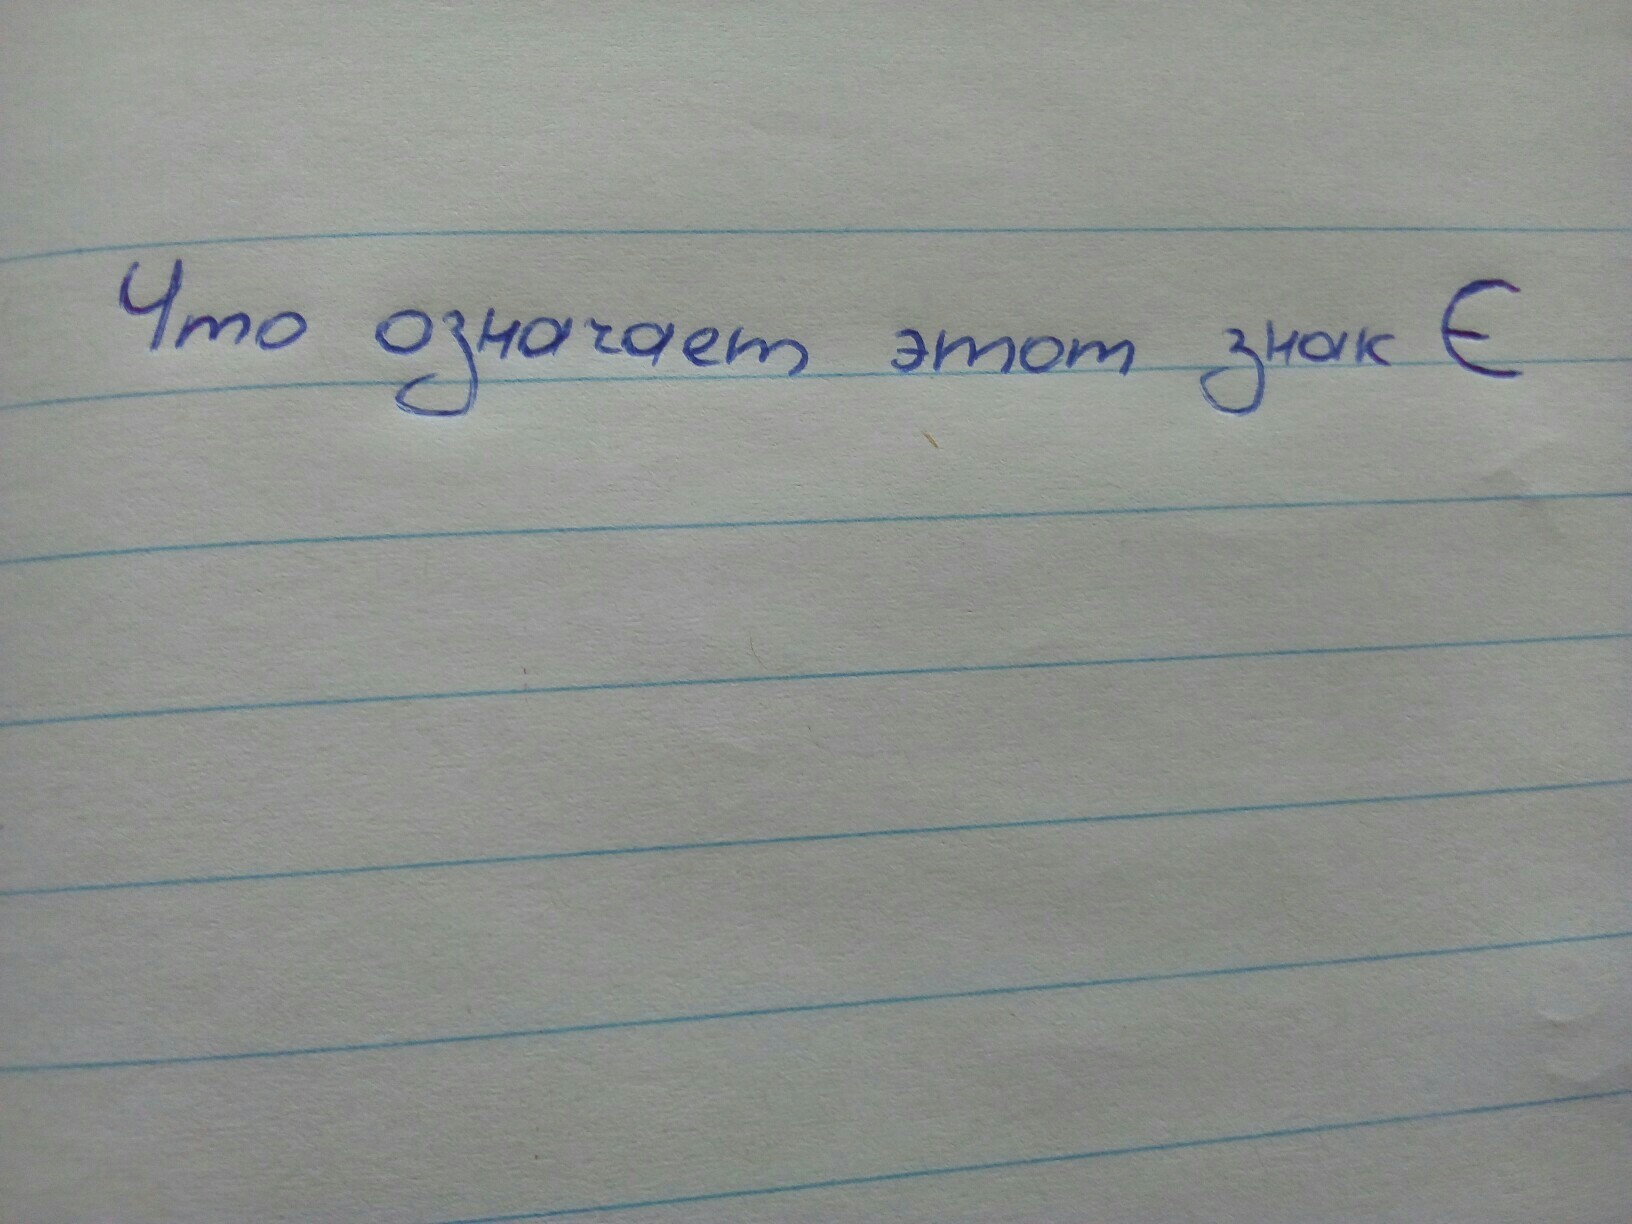 Что означает этот знак Є